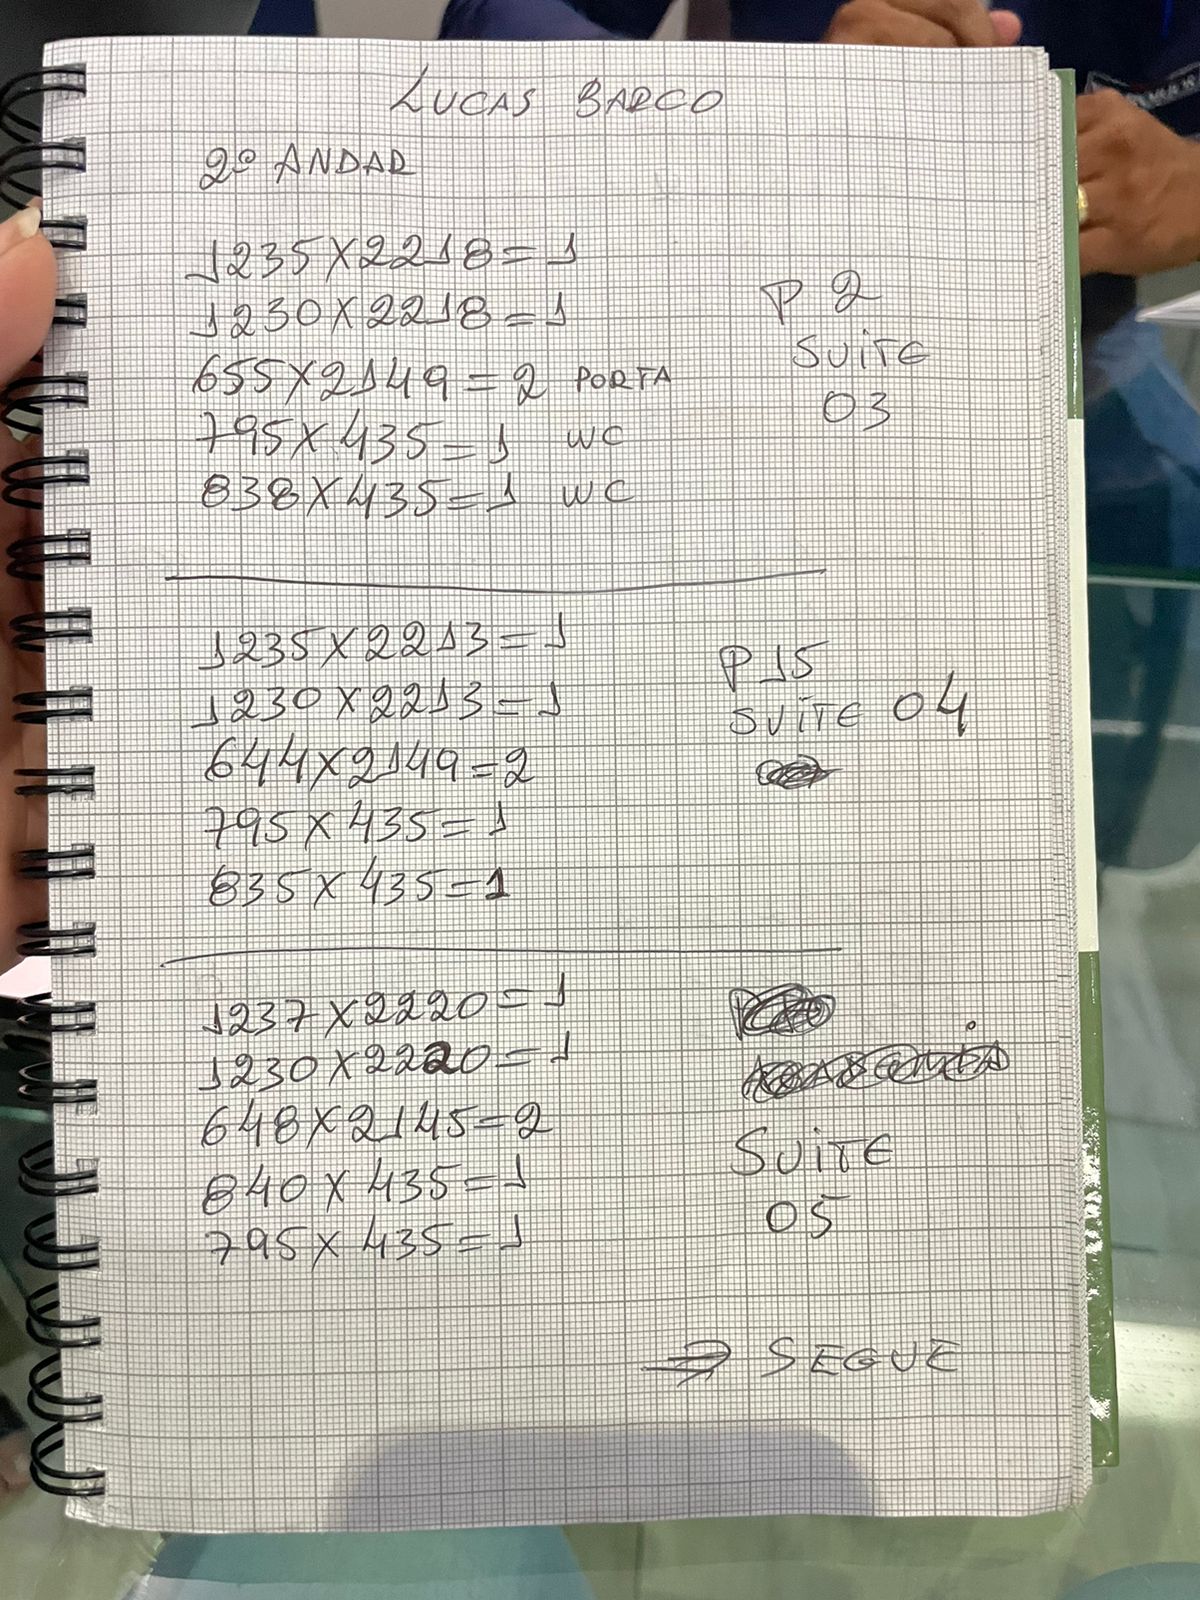 LUCAS BARCO
2º ANDAR
1235X2218=1
1230X2218=1
655X2149=2 PORTA
795X435=1 WC
838X435=1 WC
P 2
SUITE
03
1235X2213=1
1230X2213=1
644X2149=2
795X435=1
835X435=1
P 15
SUITE 04
1237X2220=1
1230X2220=1
648X2145=2
840X435=1
795X435=1
SUITE
05
⇒ SEGUE